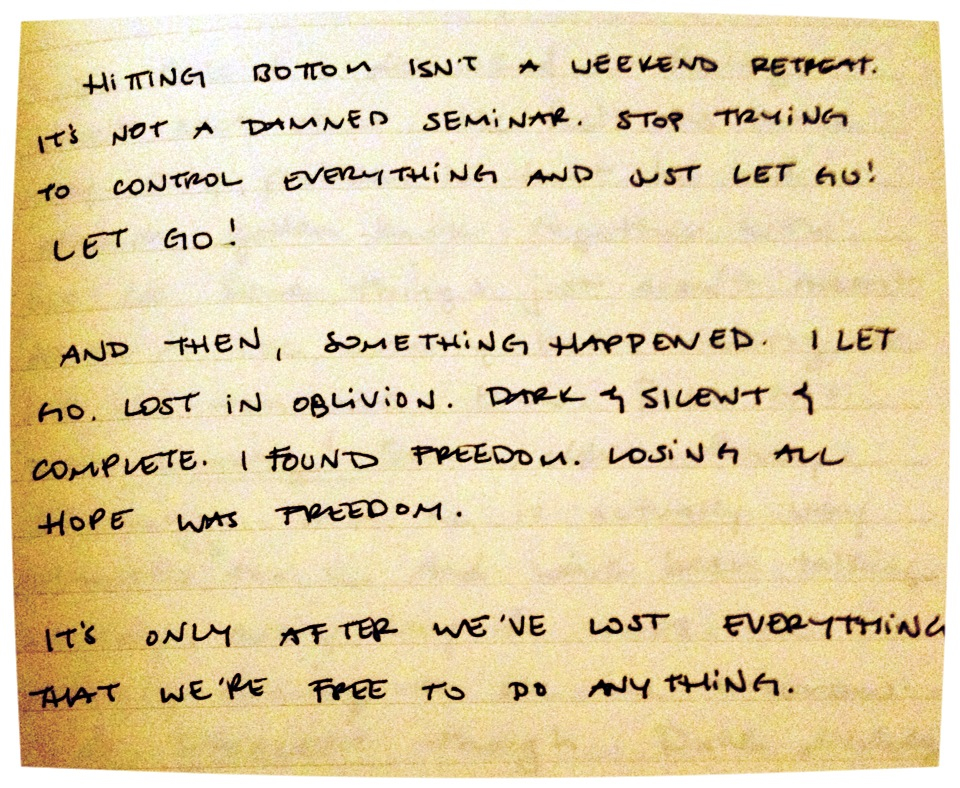 HITTING BOTTOM ISN'T A WEEKEND RETREAT.
IT'S NOT A DAMNED SEMINAR. STOP TRYING
TO CONTROL EVERYTHING AND JUST LET GO!
LET GO!
AND THEN, SOMETHING HAPPENED. I LET
GO. LOST IN OBLIVION. DARK & SILENT &
COMPLETE. I FOUND FREEDOM. LOSING ALL
HOPE WAS FREEDOM.
IT'S ONLY AFTER WE'VE LOST EVERYTHING
THAT WE'RE FREE TO DO ANYTHING.